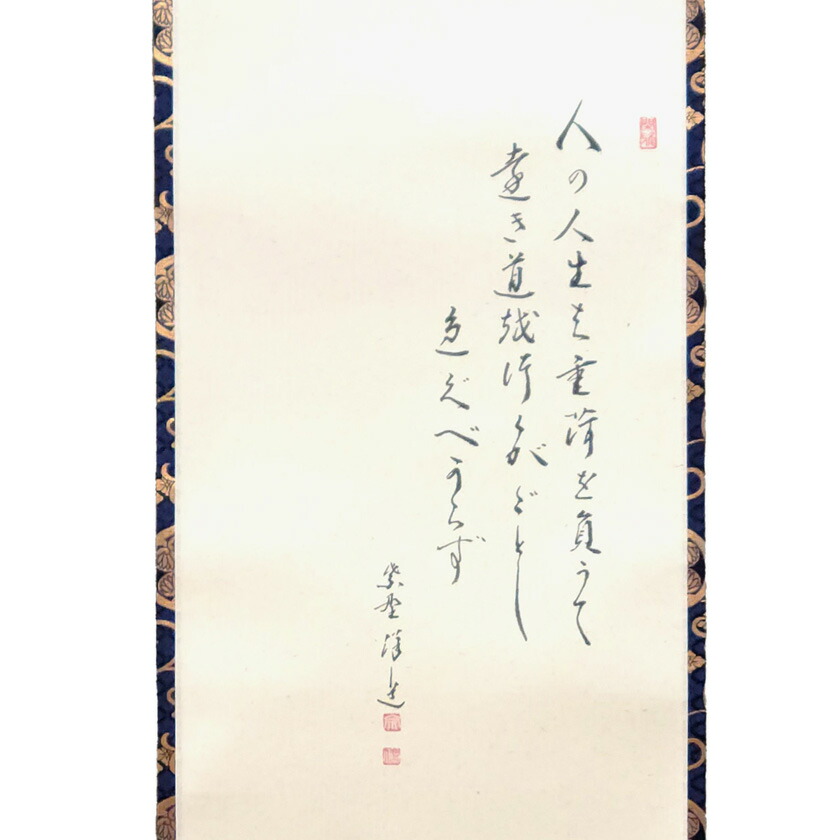 人の人生は重荷を負うて
遠き道越行くがごとし
急ぐべからず
紫野